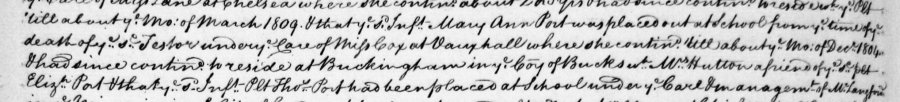 at Chelsea where she contin.^d about
'till about y.^e Mo: of March 1809. & that y.^e s.^d Inf.^t Mary Ann Port was placed out at School from y.^e time of y.^e
death of y.^e s.^d Testor under y.^e Care of Miss Cox at Vauxhall where she contin.^d 'till about y.^e Mo: of Dec.^r 1804
& had since contin.^d to reside at Buckingham in y.^e Coy of Bucks w.^t M.^rs Hutton a friend of y.^e s.^d plt
Eliz.^th Port & that y.^e s.^d Inf.^t Plt Tho.^s Port had been placed at School under y.^e Care & managem.^t of M.^r